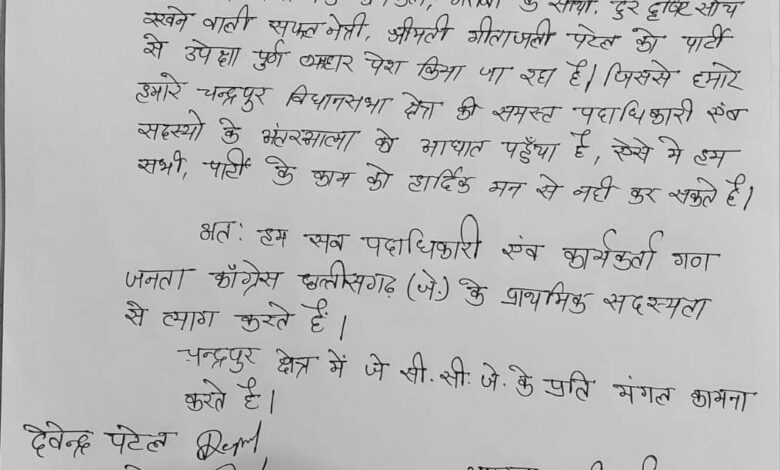 के साथी, दुर दृष्टि सोच
रखने वाली सफल नेत्री, श्रीमती गीतांजली पटेल को पार्टी
से उपेक्षा पुर्ण व्यहार पेश किया जा रहा है। जिससे हमारे
हमारे चन्द्रपुर विधानसभा क्षेत्र की समस्त पदाधिकारी एंव
सदस्यो के अंतरआत्मा को आघात पहुँचा है, ऐसे मे हम
सभी, पार्टी के काम को हार्दिक मन से नही कर सकते है।
अतः हम सब पदाधिकारी एंव कार्यकर्ता गण
जनता काँग्रेस छत्तीसगढ़ (जे.) के प्राथमिक सदस्यता
से त्याग करते हैं।
चन्द्रपुर क्षेत्र में जे सी. सी. जे. के प्रति मंगल कामना
करते है।
देवेन्द्र पटेल